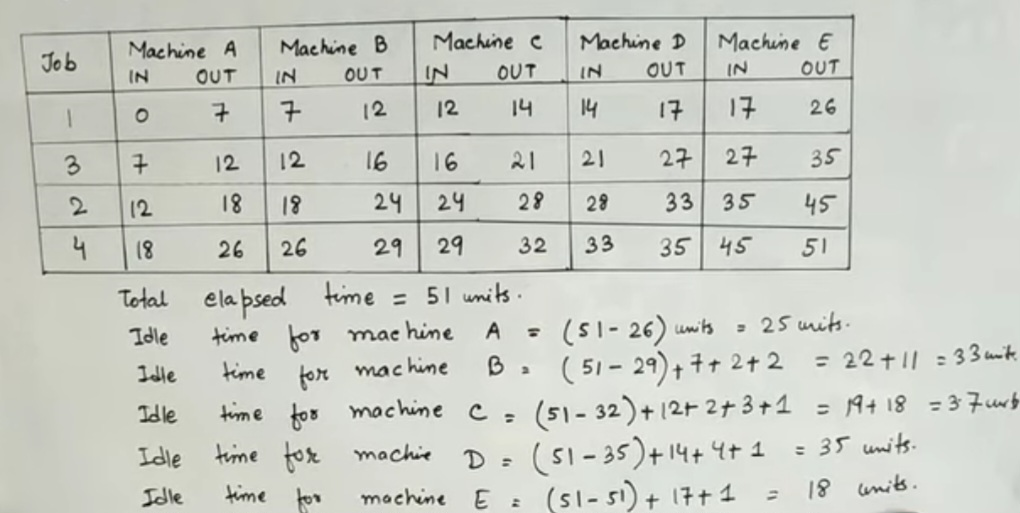 Job Machine A Machine B Machine C Machine D Machine E
IN OUT IN OUT IN OUT IN OUT IN OUT
1 0 7 7 12 12 14 14 17 17 26
3 7 12 12 16 16 21 21 27 27 35
2 12 18 18 24 24 28 28 33 35 45
4 18 26 26 29 29 32 33 35 45 51
Total elapsed time = 51 units.
Idle time for machine A = (51-26) units = 25 units.
Idle time for machine B = (51-29)+7+2+2 = 22+11 = 33 unit
Idle time for machine C = (51-32)+12+2+3+1 = 19+18 = 37
Idle time for machie D = (51-35)+14+4+1 = 35 units.
Idle time for machine E = (51-51)+17+1 = 18 units.